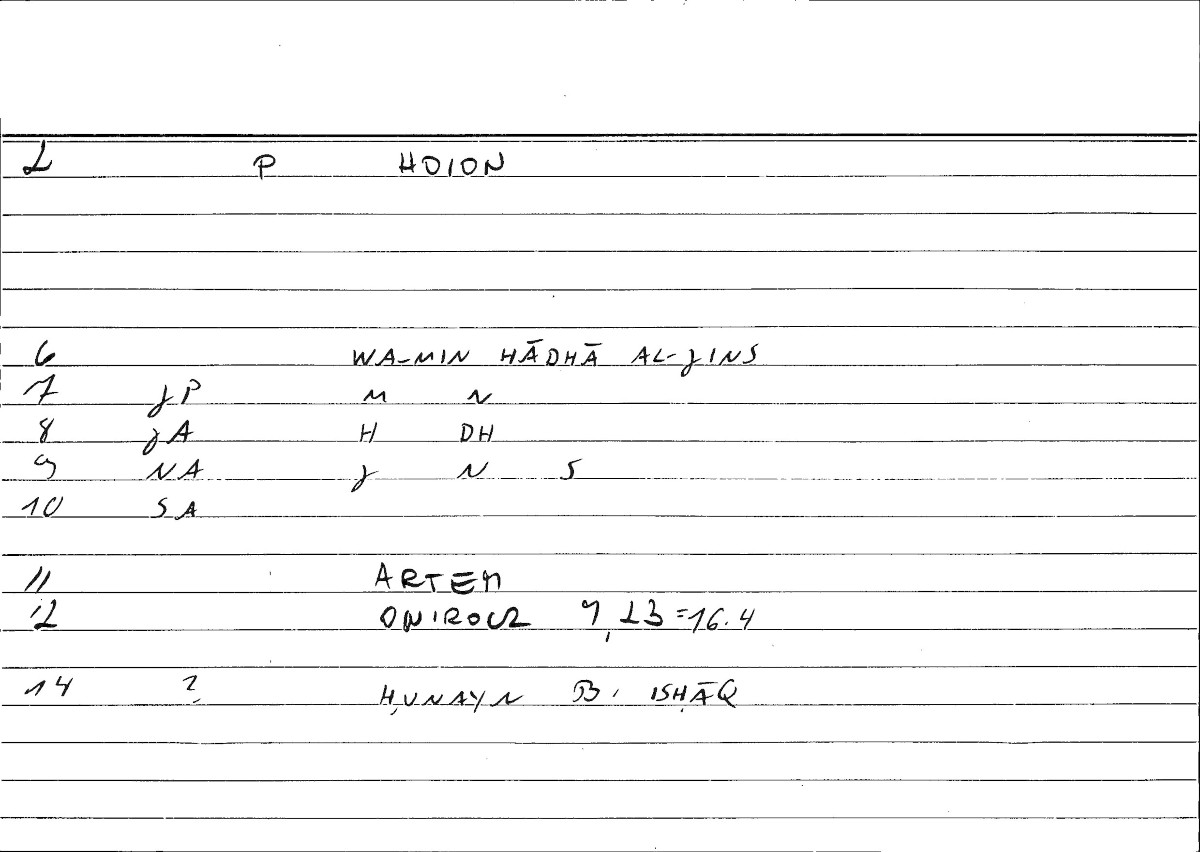 2 P HOION
6 WA-MIN HĀDHĀ AL-JINS
7 JP M N
8 JA H DH
9 NA J N S
10 SA
11 ARTEM
12 ONIROCR 9, 23 =16.4
14 ? ḤUNAYN B. ISḤĀQ